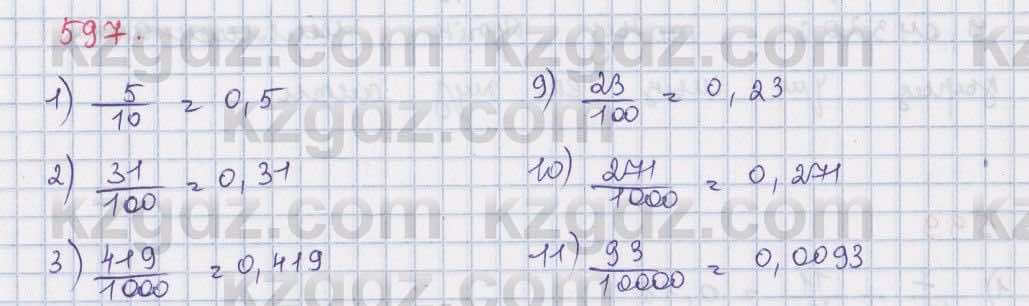 597.
1) 5/10 = 0,5
9) 23/100 = 0,23
2) 31/100 = 0,31
10) 271/1000 = 0,271
3) 419/1000 = 0,419
11) 93/10000 = 0,0093
kzgdz.com kzgdz.com
kzgdz.com
kzgdz.com kzgdz.com
kzgdz.com